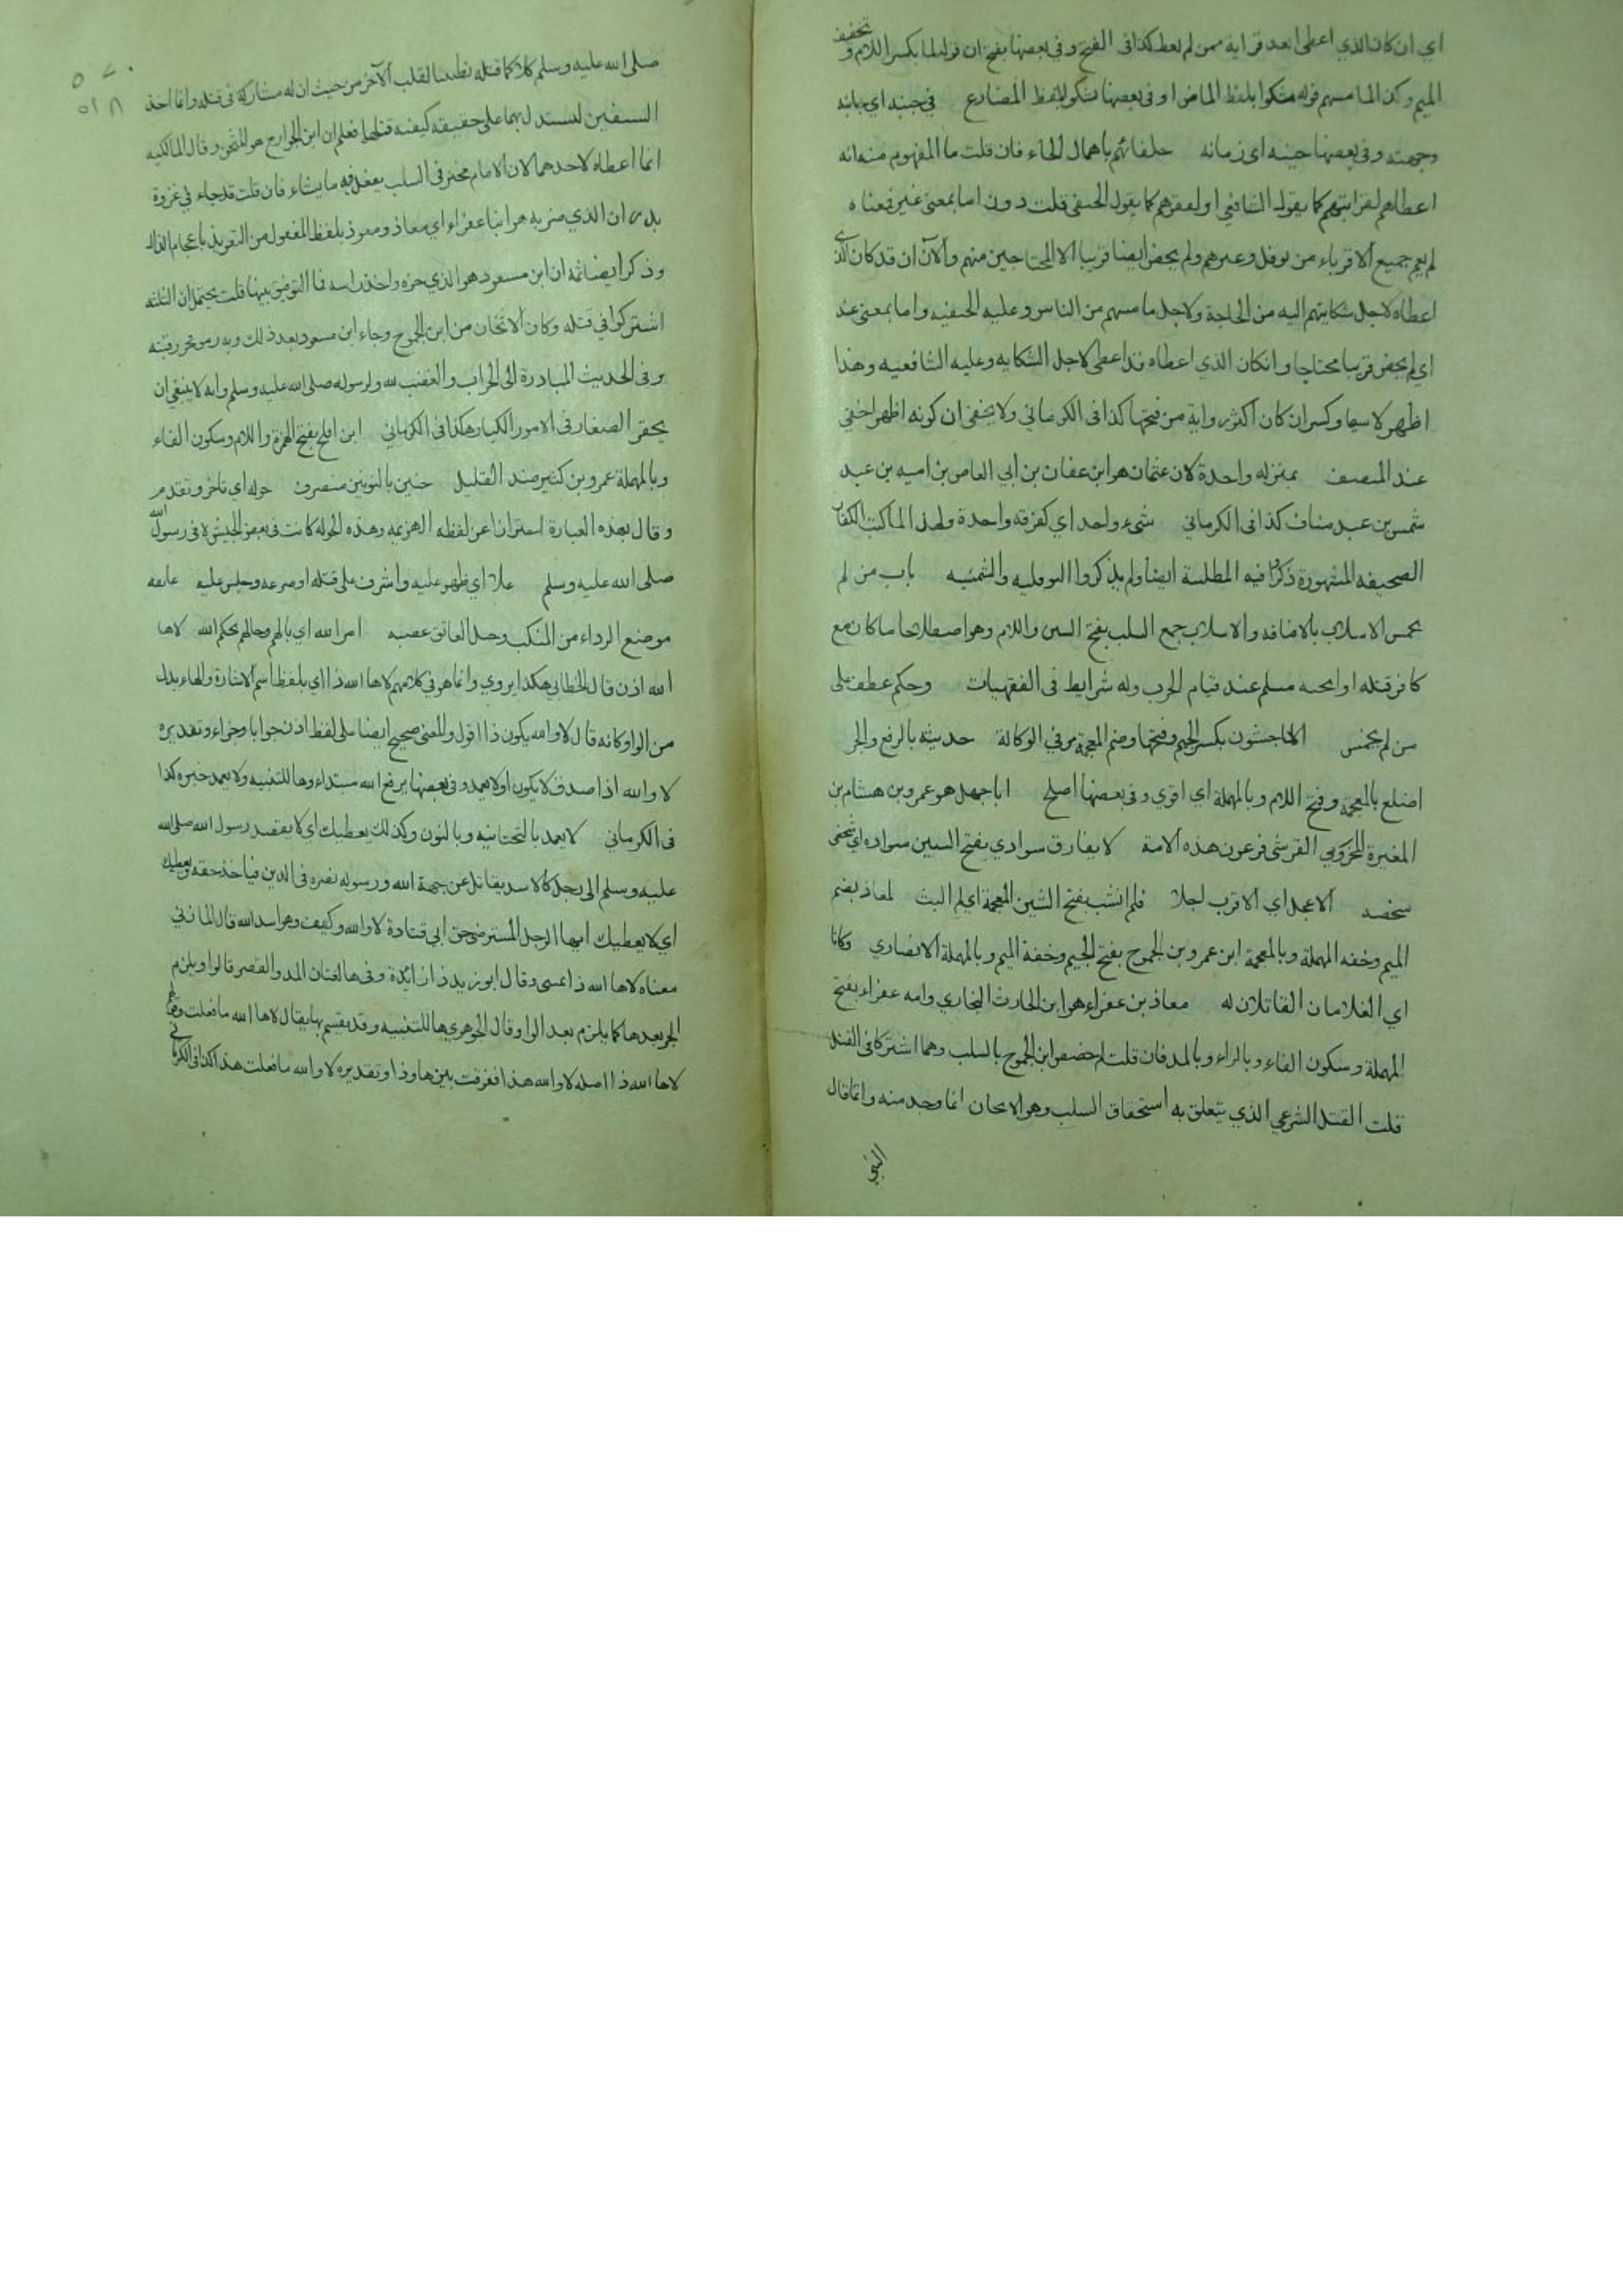 اي ان كان الذي اعطى ابعد قرابة ممن لم يعط كذا فى الفتح و فى بعضها بفتح ان قوله لما بكسر اللام و تخفيف
الميم و كذا لما مسهم قوله شكوا بلفظ الماضى او فى بعضها تشكو بلفظ المضارع في جنبه اي جانبه
وجهته و فى بعضها حينه اى زمانه حلفائهم باهمال الحاء فان قلت ما المفهوم منه انه
اعطاهم لقرابتهم كما يقوله الشافعي او لفقرهم كما يقول الحنفى قلت
لم يعم جميع الاقرباء من نوفل و غيرهم و لم يخص ايضا قريبا الا المحتاجين منهم و الا ان قد كان الذي
اعطاه لاجل شكايتهم اليه من الحاجة و لاجل ما مسهم من الناس و عليه الحنفيه و اما بمعنى عند
اي لم يخص قريبا محتاجا و انكان الذي اعطاه قد اعطى لاجل الشكايه و عليه الشافعيه و هذا
اظهر لا سيما و كسر ان كان اكثر رواية من فتحها كذا فى الكرماني و لا يخفى ان كونه اظهر اخفى
عند المنصف بمنزله واحدة لان عثمان هو ابن عفان بن ابي العاص بن اميه بن عبد
شمس بن عبد مناف كذا فى الكرماني شيء واحد اي كفرقة واحدة و لهذا لما كتب الكفار
الصحيفه المشهورة ذكروا فيه المطلبية ايضا و لم يذكروا النوفليه و الشمسيه باب من لم
يخمس الاسلاب بالاضافه و الاسلاب جمع السلب بفتح السين و اللام و هو اصطلاحا ما كان مع
كافر قتله او اثخنه مسلم عند قيام الحرب و له شرايط فى الفقهيات و حكم عطف على
من لم يخمس الماجشون بكسر الجيم و فتحها و ضم المعجمة مر في الوكالة حديثه بالرفع و الجر
اضلع بالمعجمة و فتح اللام و بالمهملة اي اقوي و فى بعضها اصلح ابا جهل هو عمرو بن هشام بن
المغيرة المخزومي القرشي فرعون هذه الامة لا يفارق سوادي بفتح السين سواده اي شخصى
شخصه الاعجل اي الاقرب اجلا فلم انشب بفتح الشين المعجمة اي لم البث لمعاذ بضم
الميم و خفه المهملة و بالمعجمة ابن عمرو بن الجموح بفتح الجيم و خفة الميم و بالمهملة الانصاري و كانا
اي الغلامان القاتلان له معاذ بن عفراء هو ابن الحارث النجاري و امه عفراء بفتح
المهملة و سكون الفاء و بالراء و بالمد فان قلت لم خصص ابن الجموح بالسلب و هما اشتركا فى القتل
قلت القتل الشرعي الذي يتعلق به استحقاق السلب و هو الاثخان انما وجد منه و انما قال
النبي
صلى الله عليه و سلم كلا كما قتله تطييبا لقلب الآخر من حيث ان له مشاركة فى قتله و انما اخذ
السيفين ليستدل بهما على حقيقه كيفيه قتلهما فعلم ان ابن الجموح هو المثخن و قال المالكيه
انما اعطاه لاحدهما لان الامام مخير فى السلب يفعل فيه ما يشاء فان قلت قد جاء في غزوة
بدر ان الذي ضربه هو ابنا عفراء اي معاذ و معوذ بلفظ المفعول من التعويذ باعجام الذال
و ذكر ايضا ثمه ان ابن مسعود هو الذي حزه و اخذ راسه فما التوفيق بينها قلت يحتمل ان الثلثه
اشتركوا في قتله و كان الاثخان من ابن الجموح و جاء ابن مسعود بعد ذلك و به رمق فحز رقبته
و فى الحديث المبادرة الى الخيرات و الغضب لله و لرسوله صلى الله عليه و سلم و انه لا ينبغي ان
يحقر الصغار فى الامور الكبار هكذا فى الكرماني ابن افلح بفتح الهمزة و اللام و سكون الفاء
و بالمهملة عمرو بن كثير ضد القليل حنين بالنونين منصرف جوله اي تاخر و تقدم
و قال بهذه العبارة احترازا عن لفظه الهزيمه و هذه الجوله كانت فى بعض الجيش لا فى رسول الله
صلى الله عليه و سلم علا اي ظهر عليه و اشرف على قتله او صرعه و جلس عليه عاتقه
موضع الرداء من المنكب و حبل العاتق عصبه امر الله اي بالهم و حالهم بحكم الله لاها
الله اذن قال الخطابي هكذا يروي و انما هو في كلامهم لاها الله ذا اي بلفظ اسم الاشارة و الهاء بدل
من الواو كانه قال لا و الله يكون ذا اقول و المعنى صحيح ايضا على لفظ اذن جوابا و جزاء و تقديره
لا و الله اذا صدق لا يكون او لا يعمد و فى بعضها يرفع الله مبتداء و ها للتنبيه و لا يعمد خبره كذا
فى الكرماني لا يعمد بالتحتانيه و بالنون و كذلك يعطيك اي لا يقصد رسول الله صلى الله
عليه و سلم الى رجل كالاسد يقاتل عن جهة الله و رسوله نصره فى الدين فياخذ حقه و يعطيك
اي لا يعطيك ايها الرجل المسترضى حق ابي قتادة لا و الله و كيف و هو اسد الله قال المازني
معناه لاها الله ذا يمينى و قال ابو زيد ذا زائدة و فى ها لغتان المد و القصر قالوا و يلزم
الجر بعدها كما يلزم بعد الواو قال الجوهري ها للتنبيه و قد يقسم بها يقال لاها الله ما فعلت و قولهم
لاها الله ذا اصله لا و الله هذا ففرقت بين ها و ذا و تقديره لا و الله ما فعلت هذا كذا فى الكرماني